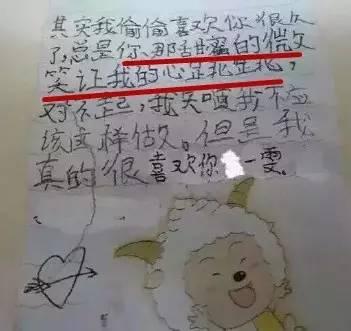 其实我偷偷喜欢你很久
了,总是你那甜蜜的微文
笑让我的心怦怦
对不起,我知道我不应
该这样做。但是我
真的很喜欢你 一雯